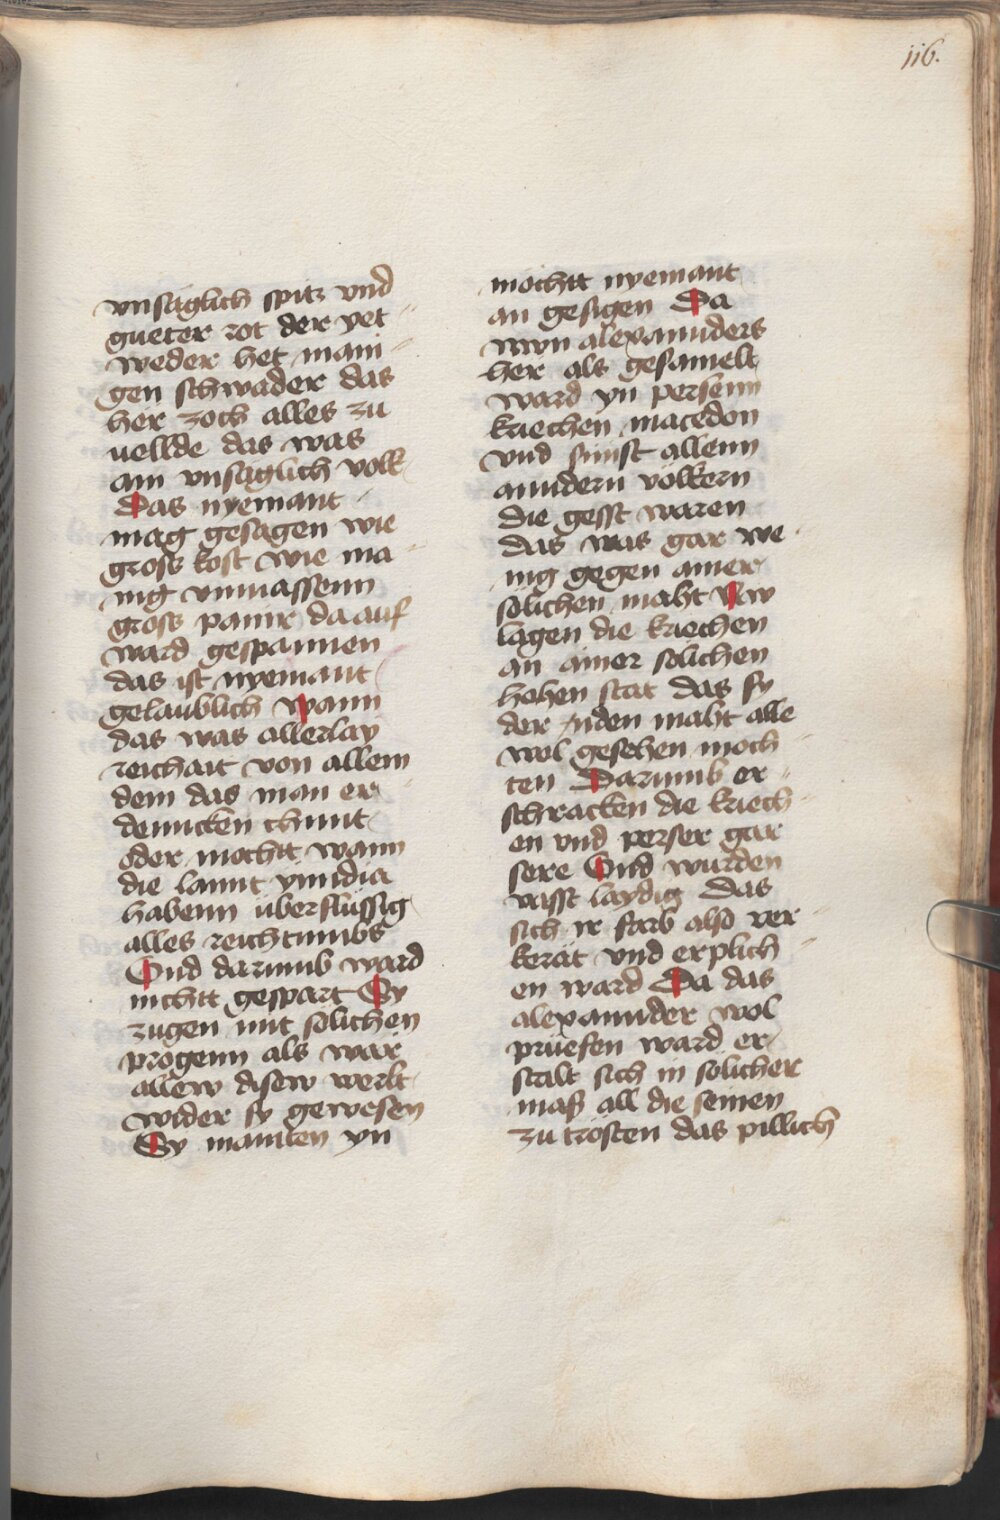 116.
vnsäglich spitz vnd
gueter rot der yet
weder het mani
gen schwader das
her zoch alles zu
uellde das was
ain vnsäglich volk
Das nyemant
mag gesagen wie
gross kost wie ma
nig vnmassenn
gross panir da auf
ward gespannen
das ist nyemant
gelaublich Wann
das was allerlay
reichait von allem
dem das man er
denncken chunt
oder mochtt wann
die lannt yinndia
habenn überflüssig
alles reichtumbs
Vnd darumb ward
nichtt gespart Sy
zugen mit solichen
progenn als war
allew disew werlt
wider sy gewesen
Sy mainten yn
mochtt nyemant
an gesigen Da
nwn alexannders
her als gesamelt
ward yn persenn
kriechen macedon
vnd sunst allenn
anndern völkern
die gesst waren
das was gar we
nig gegen ainer
solichen maht Nw
lagen die kriechen
an ainer solichen
hohen stat das sy
der ynden maht alle
wol gesehen moch
ten Darumb er
schracken die kriech
en vnd perser gar
sere Vnd wurden
vasst laydig das
sich ir farb also ver
kerät vnd erplich
en ward Da das
alexannder wol
pruefen ward er
stalt sich in sölicher
maß all die seinen
zu trosten das pillich